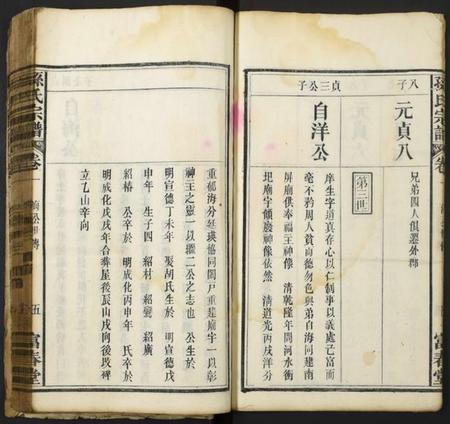 孫氏宗譜
卷一
八子
元貞八
兄弟四人俱遷外
貞三公子
自洋公
第三世
庠生字道真存心以仁制事以義處己富而
毫不矜周人貧而德勿色與弟自海同建南
屏廟供奉福主神像 清乾隆年間河水衝
圮廟宇傾廢神像依然 清道光丙戌洋分
重郁海分廷瑛協同閤戸重建廟宇一以彰
神主之靈一以擢二公之志也 公生於
明宣德丁未年 娶胡氏生於 明宣德戊
申年 生子四 紹村 紹 紹廣
紹椿 公卒於 明成化丙申年 氏卒於
明成化戊戌年合葬屋後辰山戌向後塋碑
立乙山辛向
孫氏宗譜
卷一
五
富春堂
富春堂